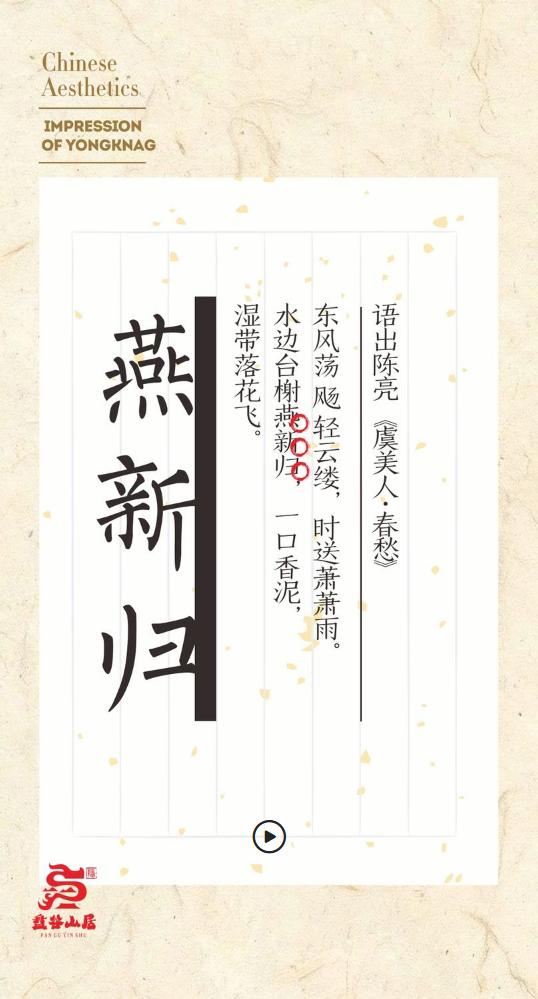 Chinese
Aesthetics
IMPRESSION
OF YONGKNAG
语出陈亮《虞美人·春愁》
东风荡飏轻云缕，时送萧萧雨。
水边台榭燕新归，一口香泥，
湿带落花飞。
燕新归
盘谷山居
PAN GU YIN SHU